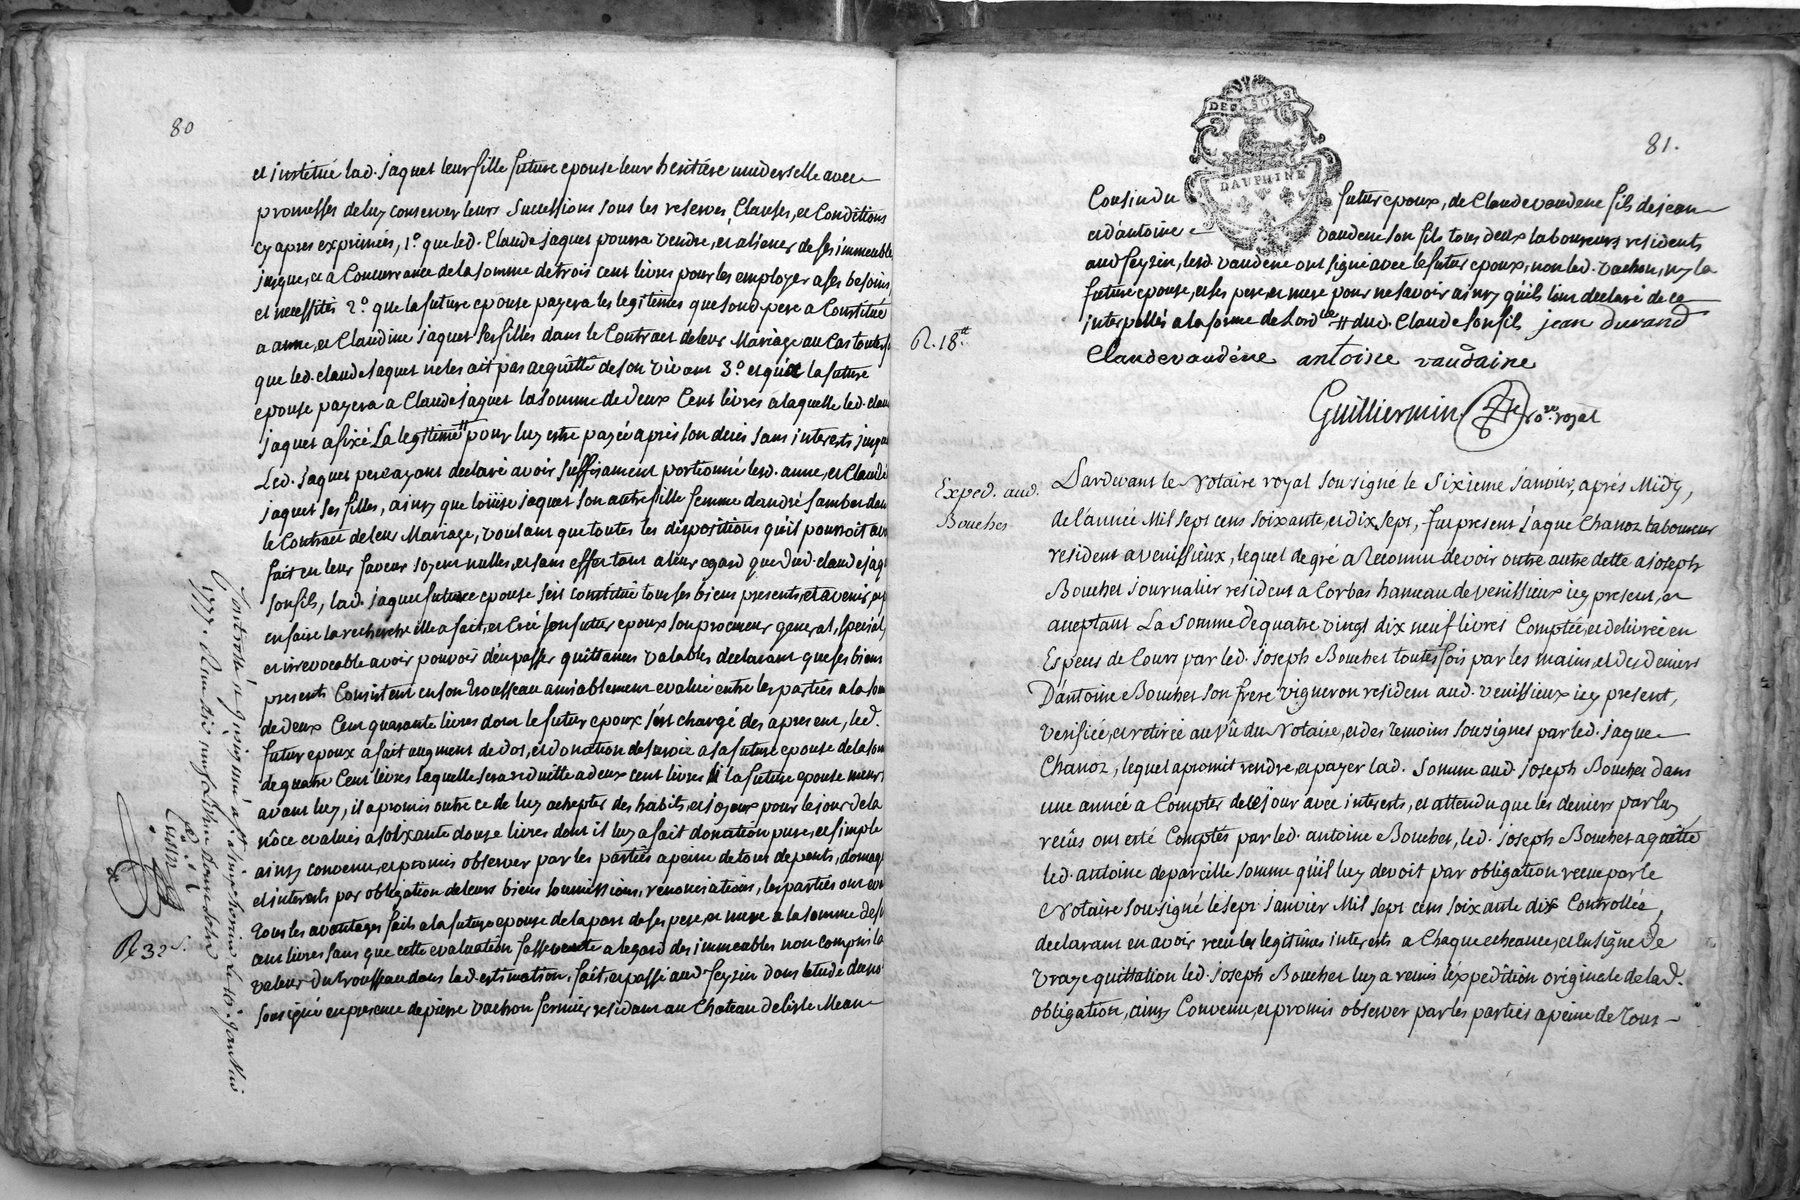 80
et institué lad. jaquet leur fille future epouse leur heritiére universelle avec
promesses de luy conserver leurs Successions sous les reserves, Clauses, et Conditions
cy apres exprimées, 1.º que led. Claude jaquet pourra vendre, et aliener de ses immeubles
jusques a Concurrance de la somme de trois cent livres pour les employer a ses besoins,
et necessités 2.º que la future epouse payera les legitimes que sond. pere a Constitué
a anne, et Claudine jaquet ses filles dans le Contract de leur Mariage au Cas toutes
que led. claude jaquet ne les ait pas acquitté de son vivant 3.º et que la future
epouse payera a Claude jaquet la somme de deux Cent livres a laquelle led. claude
jaquet a fixé La legitime # pour luy estre payée après son decés sans interests jusque
Led. jaquet pere ayant declaré avoir suffisament portionné lesd. anne, et Claudine
jaquet ses filles, ainsy que loüise jaquet son autre fille femme d'andré Sambet dans
le Contract de leur Mariage, voulant que toutes les dispositions qu'il pourroit avoir
fait en leur faveur soyent nulles, et sans effet tant a leur egard que dud. claude jaq
son fils, lad. jaquet future epouse s'est constitué tous ses biens presents, et avenir, po
en faire la recherche elle a fait, et Créé son futur epoux son procureur general, special,
et irrevocable avec pouvoir d'en passer quittances valables declarant que ses biens
presents Consistent en son trousseau amiablement evalué entre les parties a la som
de deux Cent quarante livres dont le futur epoux s'est chargé des apresent, led.
futur epoux a fait augment de dot, et donation de survie a sa future epouse de la som
de quatre Cent livres laquelle sera reduitte a deux cent livres si la future epouse meurt
avant luy, il a promis outre ce de luy achepter des habits, et joyaux pour le jour de la
nôce evalués a soixante douse livres dont il luy a fait donation pure, et simple
ainsy convenu, et promis observer par les parties a peine de tous depents, domag
et interests par obligation de leurs biens soumissions, renonciations, les parties ont eva
tous les avantages faits a la future epouse de la part de ses pere, et mere a la somme de
cent livres sans que cette evaluation fasse a legard des immeubles non compris la
valeur du trousseau dans lad. estimation, fait, et passé aud. feyzin dans letude du no
soussigné en presence de pierre vachon fermier residant au Chateau de lisle Mean
R 32 s.
81.
DEUX SOLS
DAUPHINE
Cousin du futur epoux, de Claude vaudene fils de jean
et d'antoine vaudene son fils tous deux laboureurs residents
aud feyzin, lesd. vaudene ont signé avec le futur epoux, non led. vachon, ny la
future epouse, et ses pere, et mere pour ne savoir ainsy qu'ils l'ont declaré de ce
interpellés a la forme de Lord.ce # dud. Claude son fils jean durand
R. 18 tt
Claude vaudéne antoine vaudaine
Guilliermin no.re royal
Exped. aud.
Bouchet
Pardevant le Notaire royal soussigné le Sixieme janvier, aprés Midy,
de l'année Mil sept cens soixante, et dix sept, fut present jaque Chanoz laboureur
resident a venissieux, lequel de gré a Reconnu devoir outre autre dette a joseph
Bouchet journalier resident a Corbas hameau de venissieux icy present, et
acceptant La somme de quatre vingt dix neuf livres Comptée, et delivrée en
Especes de Cours par led. joseph Bouchet toutesfois par les mains, et des deniers
D'antoine Bouchet son frere vigneron resident aud. venissieux icy present,
verifiée, et retirée au vû du Notaire, et des temoins soussignés par led. jaque
Chanoz, lequel a promit rendre, et payer lad. Somme aud. joseph Bouchet dans
une année a Compter de ce jour avec interests, et attendu que les deniers par luy
recûs ont esté Comptés par led. antoine Bouchet, led. joseph Bouchet a quitté
led. antoine de pareille somme qu'il luy devoit par obligation recue par le
Notaire soussigné le sept janvier Mil sept cens soixante dix Controllée,
declarant en avoir recû les legitimes interests a Chaque echeance, et En signe de
vraye quittation led. joseph Bouchet luy a remis l'expedition originale de lad.
obligation, ainsy Convenu, et promis observer par les parties a peine de tous